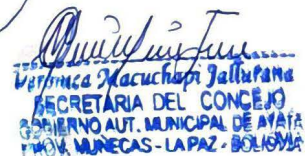 Veronica Macuchapi Jallurana
SECRETARIA DEL CONCEJO
GOBIERNO AUT. MUNICIPAL DE AYATA
PROV. MUÑECAS - LA PAZ - BOLIVIA